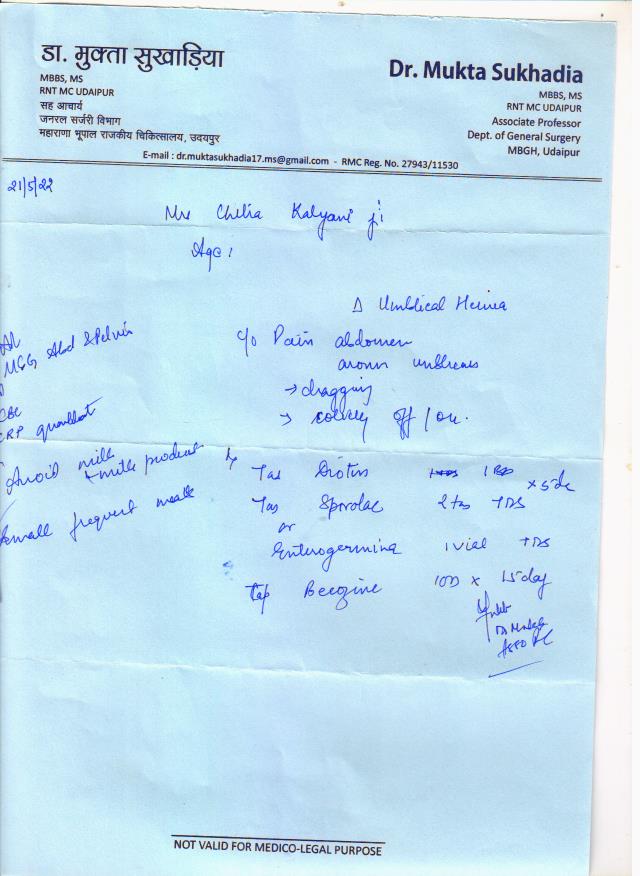 डा. मुक्ता सुखाड़िया
MBBS, MS
RNT MC UDAIPUR
सह आचार्य
जनरल सर्जरी विभाग
महाराणा भूपाल राजकीय चिकित्सालय, उदयपुर
Dr. Mukta Sukhadia
MBBS, MS
RNT MC UDAIPUR
Associate Professor
Dept. of General Surgery
MBGH, Udaipur
E-mail : dr.muktasukhadia17.ms@gmail.com - RMC Reg. No. 27943/11530
21/5/22
Kalyani ji
Age :
Δ Umblical Hernia
c/o Pain abdomen
→ dragging
→ off / on.
Abd & Pelvis
CRP
Avoid milk
+ milk product
small frequent meals
Tab × 5
Tab Sporolac 2 tab TDS
or
Enterogermina 1 vial TDS
Becozine 1OD × 15 day
NOT VALID FOR MEDICO-LEGAL PURPOSE